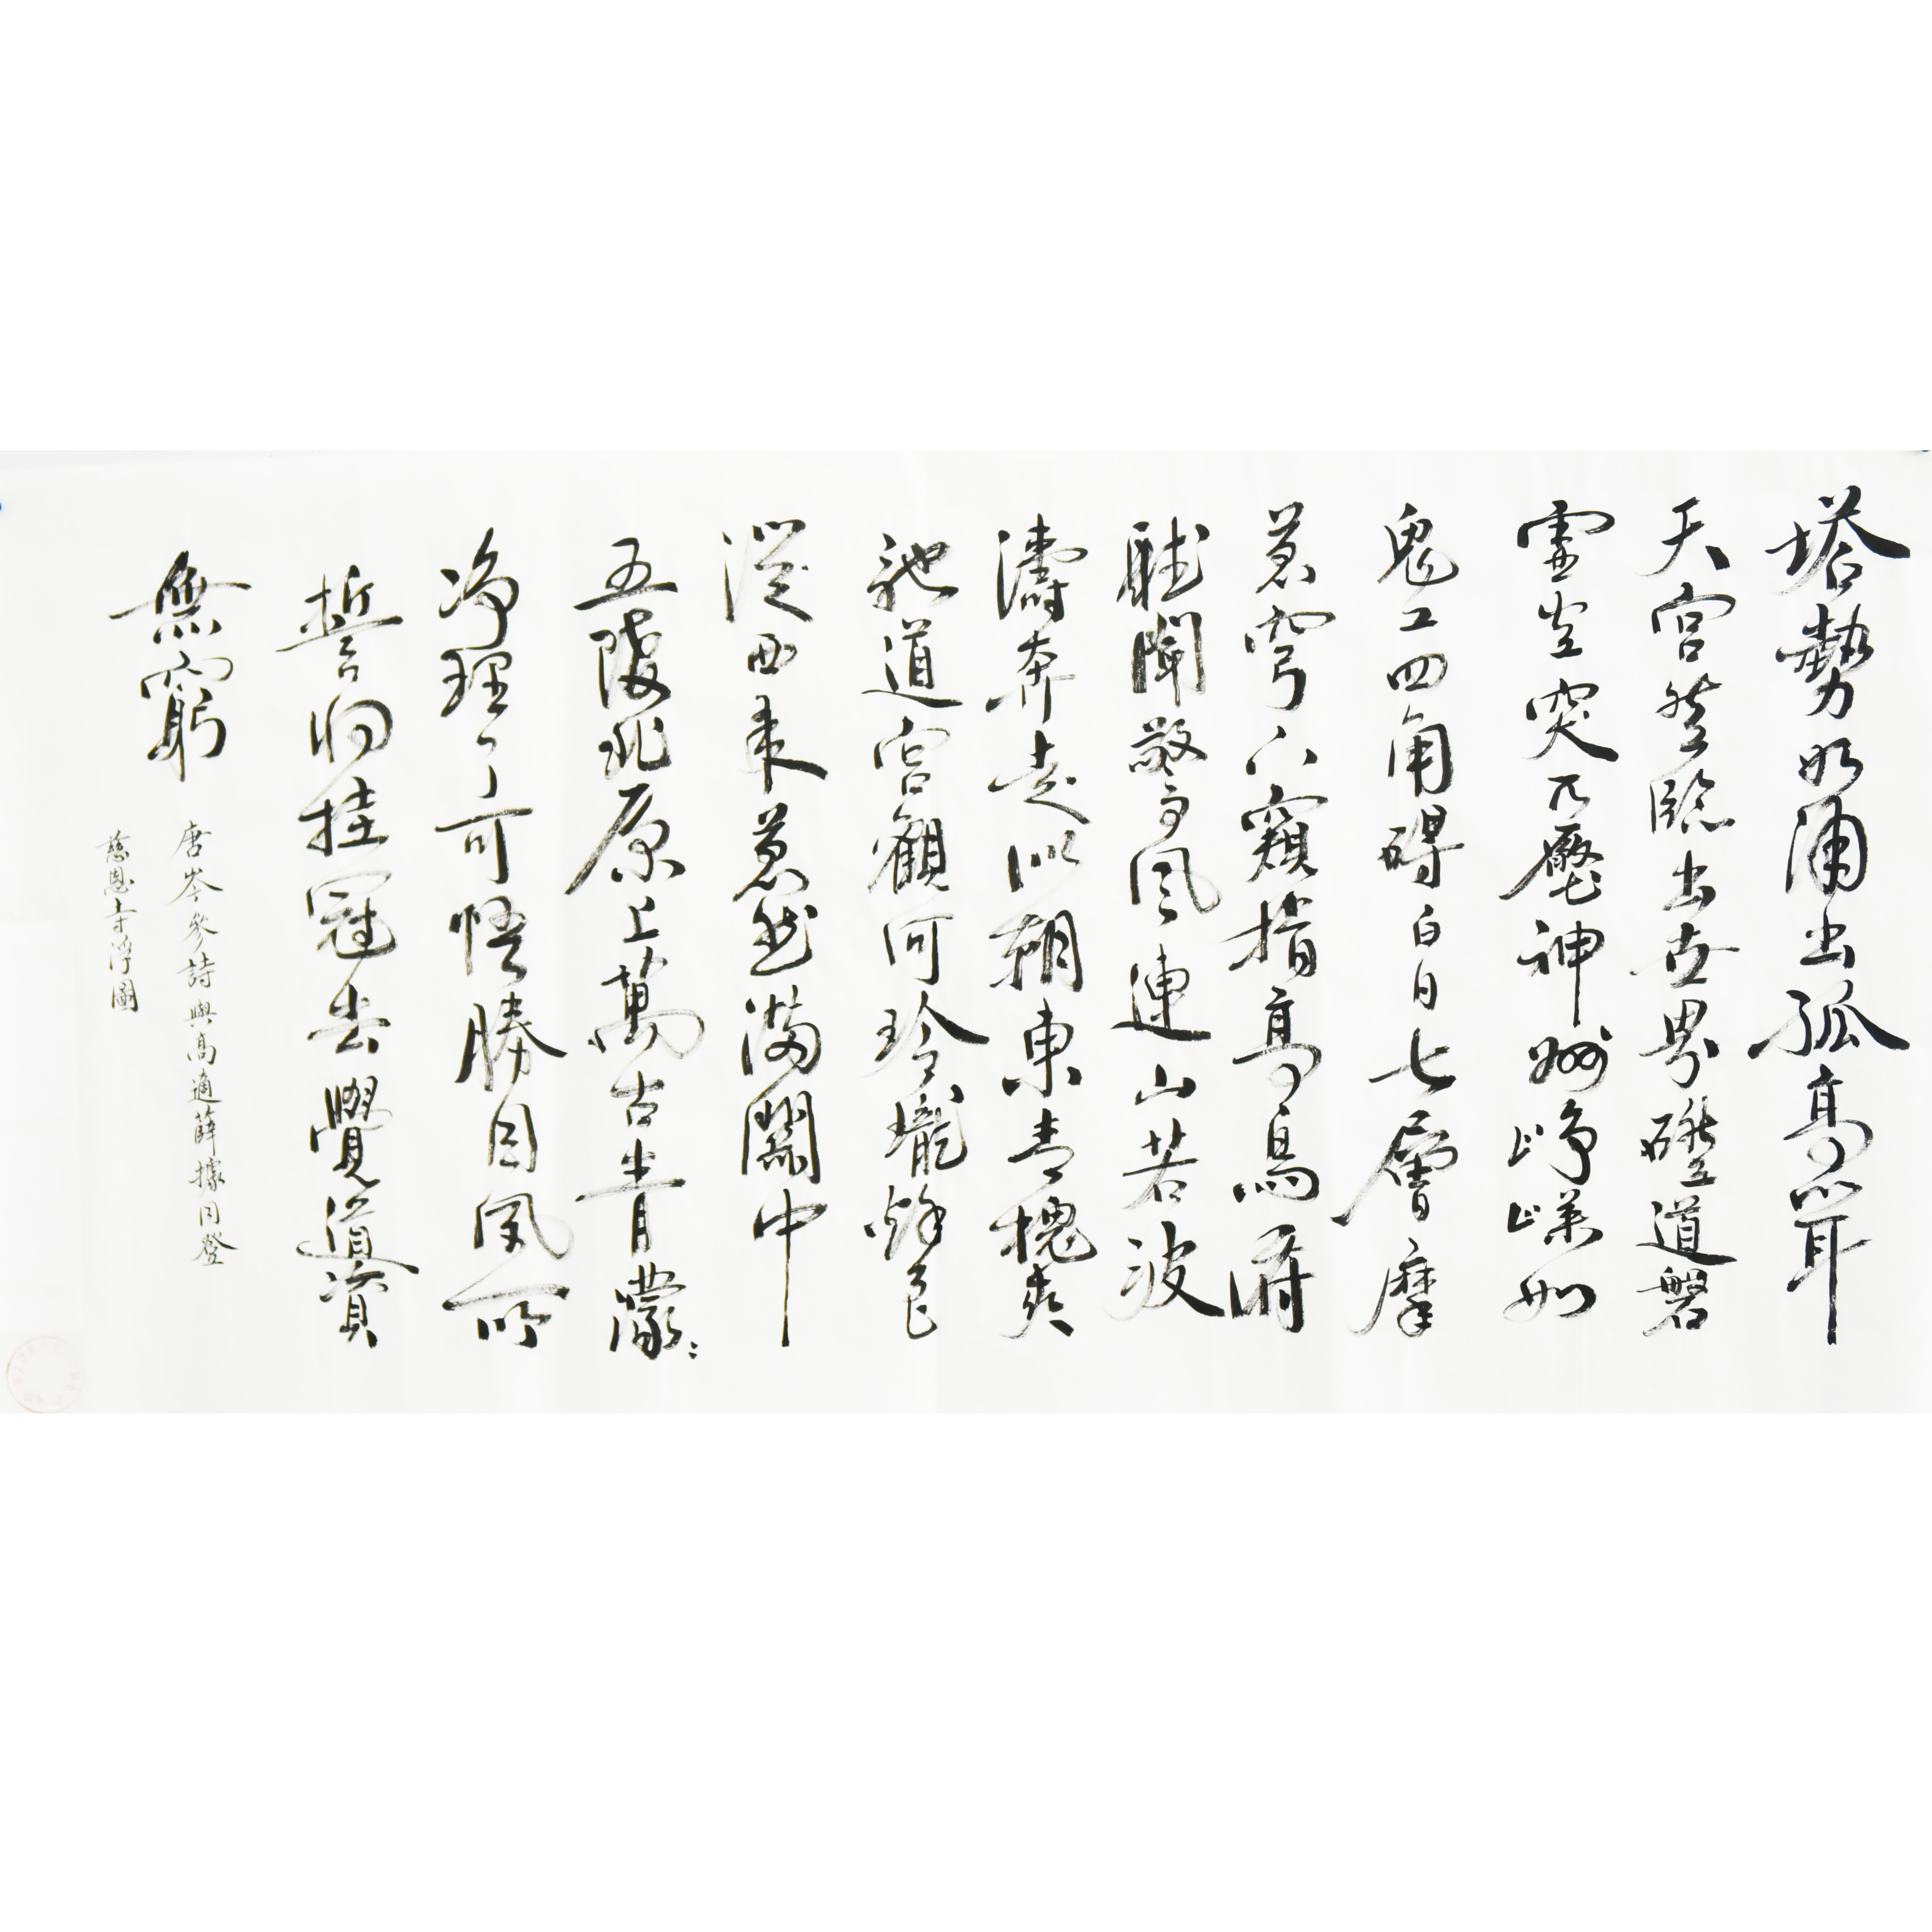 塔勢如涌出孤高聳
天宮登臨出世界磴道磐
虛空突兀壓神州崢嶸如
鬼工四角碍白日七層摩
蒼穹下窺指高鳥俯
聽聞驚風連山若波
濤奔走似朝東青槐夾
馳道宮觀何玲瓏秋色
從西來蒼然滿關中
五陵北原上萬古青濛〻
净理了可悟勝因夙所
誓將挂冠去覺道資
無窮
唐岑參詩與高適薛據同登
慈恩寺浮圖